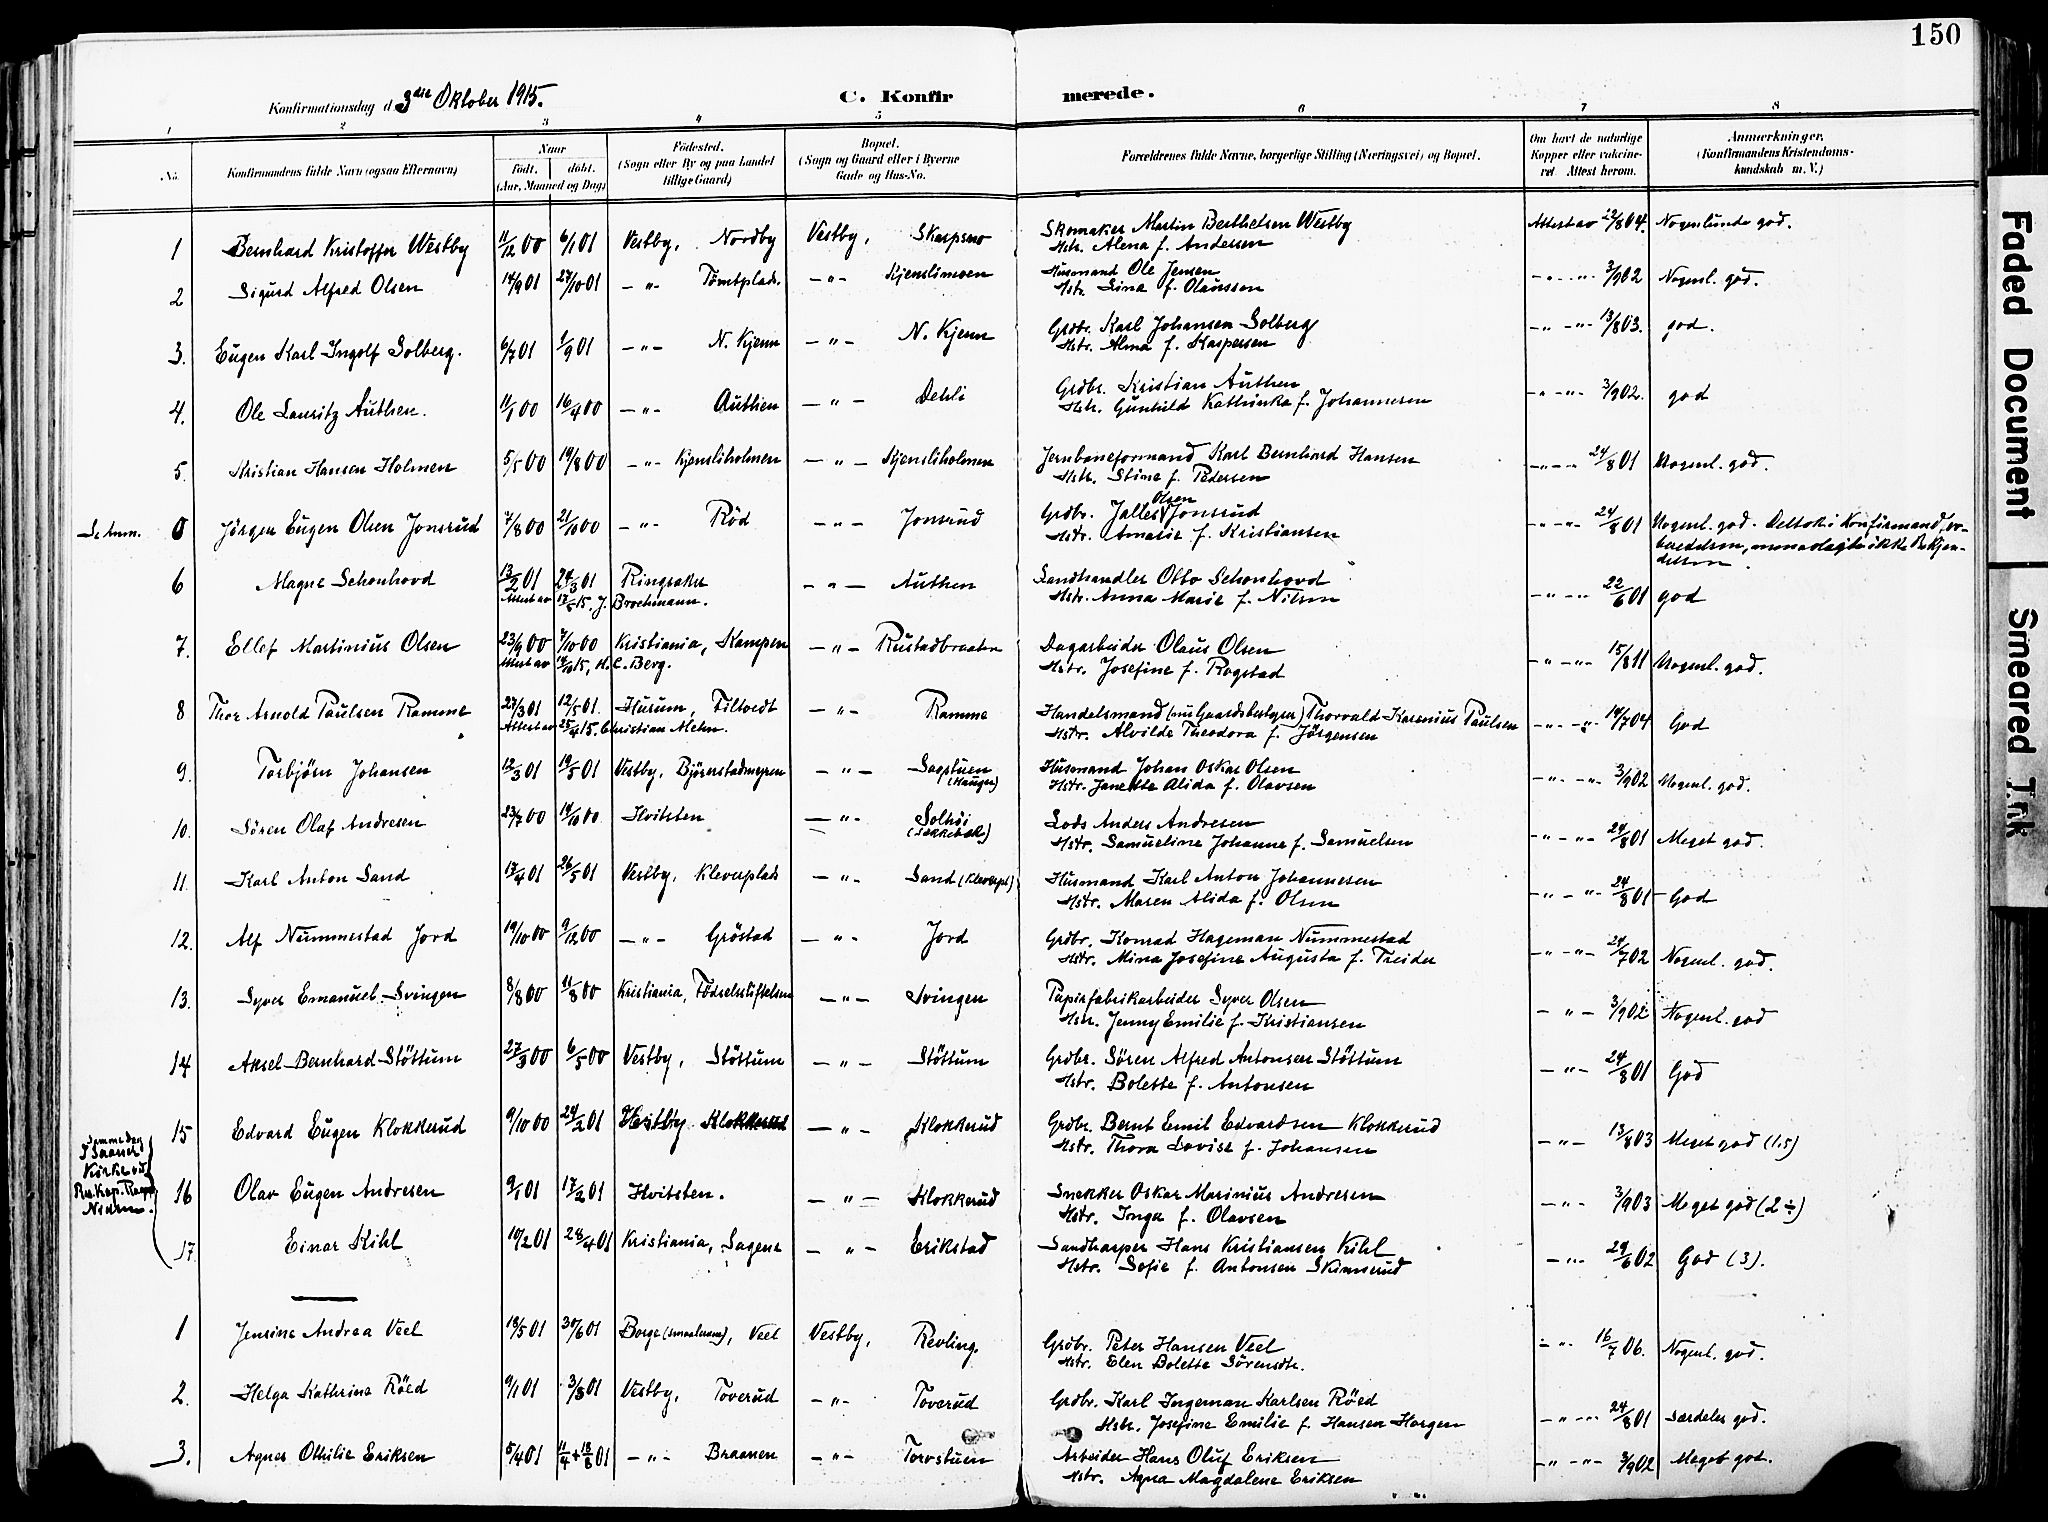 150
Konfirmationsdag d. 3die Oktober 1915.
C. Konfirmerede.
1 2 3 4 5 6 7 8
No. Konfirmandens fulde Navn (ogsaa Efternavn) Naar født. døbt. (Aar, Maaned og Dag) Fødested. (Sogn eller By og paa Landet tillige Gaard) Bopæl. (Sogn og Gaard eller i Byerne Gade og Hus-No. Forældrenes fulde Navne, borgerlige Stilling (Næringsvei) og Bopæl. Om havt de naturlige Kopper eller vakcineret. Attest herom. Anmærkninger. (Konfirmandens Kristendomskundskab m. V.)
1 Bernhard Kristoffer Westby 11/12 00 6/1 01 Vestby, Nordby Vestby, Skarpsno Skomaker Martin Berthelsen Westby Attest av 22/8 04. Nogenlunde god.
Hstr. Alena f. Andersen
2 Sigurd Alfred Olsen 14/9 01 27/10 01 — " — Tomtplads. — " — Kjenslimoen Husmand Ole Jensen — " — " 3/9 02 Nogenl. god.
Hstr. Lina f. Olaussen
3. Eugen Karl Ingolf Solberg. 6/7 01 1/9 01 — " — N. Kjenn — " — N. Kjenn Grdbr. Karl Johansen Solberg — " — " — 13/8 03. god.
Hstr. Alma f. Kaspersen
4. Ole Lauritz Authen. 11/1 00 16/4 00 — " — Authen — " — Dehli Grdbr. Kristian Authen — " — " — 3/9 02. god
Hstr. Gunhild Kathinka f. Johannesen
5. Kristian Hansen Holmen 5/5 00 19/8 00 — " — Kjensliholmen — " — Kjensliholmen Jernbaneformand Karl Bernhard Hansen — " — " 24/8 01 Nogenl. god.
Hstr. Stine f. Pedersen
Se Anm. 0 Jörgen Eugen Olsen Jonsrud 7/8 00 21/10 00 — " — Röd — " — Jonsrud Grdbr. Jalles Olsen Jonsrud — " — " 24/8 01 Nogenl. god. Deltok i Konfirmandfor-
Hstr. Amalie f. Kristiansen beredelsen, men avlagte ikke Bekjen-
delsen.
6 Magne Schonhovd 13/2 01 24/3 01 Ringsaker — " — Authen Landhandler Otto Schonhovd — " — " 22/6 01 god
Attest av 17/5 15. J. Brochmann. Hstr. Anna Marie f. Nilsen
7. Ellef Martinius Olsen 23/9 00 7/10 00 Kristiania, Kampen — " — Rustadbraaten Dagarbeider Olaus Olsen — " — " — 15/8 11 Nogenl. god.
C. Berg. Hstr. Josefine f. Rogstad
8 Thor Arnold Paulsen Ramme 27/3 01 12/5 01. Hurum, Filtvedt — " — Ramme Handelsmand (nu Gaardsbestyrer) Thorvald Karenius Paulsen — " — " 19/7 04 God
Attest av 25/4 15. Christian Mehn. Hstr. Alvilde Theodora f. Jörgensen
9. Torbjörn Johansen 12/3 01 19/5 01 Vestby, Bjørnstadmyren — " — Sagstuen (Haugen) Husmand Johan Oskar Olsen — " — " 3/9 02 Nogenl. god.
Hstr. Janette Alida f. Olavsen
10. Sören Olaf Andresen 23/7 00 14/10 00 Hvitsten — " — Solhöi Lods Anders Andresen — " — " 24/8 01 Meget god.
Hstr. Samueline Johanne f. Samuelsen
11. Karl Anton Sand 17/4 01 26/5 01 Vestby, Kleverplads — " — Sand (Kleverpl) Husmand Karl Anton Johannesen — " — " 24/8 01 God
Hstr. Maren Alida f. Olsen
12. Alf Nummestad Jord 19/10 00 9/12 00 — " — Gröstad — " — Jord Grdbr. Konrad Hageman Nummestad — " — " — 24/7 02 Nogenl. god.
Hstr. Mina Josefine Augusta f. Treider
13. Syver Emanuel Svingen 8/8 00 11/8 00 Kristiania, Födselsstiftelsen — " — Svingen Papirfabrikarbeider Syver Olsen — " — 3/9 02 Nogenl. god
Hstr. Jenny Emilie f. Kristiansen
14 Aksel Bernhard Stöttum 27/3 00 6/5 00 Vestby, Stöttum — " — Stöttum Grdbr. Sören Alfred Antonsen Stöttum — " — 24/8 01 God
Hstr. Bolette f. Antonsen
15 Edvard Eugen Klokkerud 9/10 00 24/2 01 Vestby Klokkerud — " — Klokkerud Grdbr. Bernt Emil Edvardsen Klokkerud — " — 13/8 03 Meget god (1.5)
Hstr. Thora Lovise f. Johansen
Samme dag
i Saaner
Kirke
16 Olav Eugen Andresen 9/1 01 17/2 01 Hvitsten. — " — Klokkerud Snekker Oskar Marinius Andresen — " — 3/9 03 Meget god (2 ÷)
Hstr. Inga f. Olavsen
17 Einar Kihl 10/2 01 28/4 01 Kristiania, Sagene — " — Erikstad Sandkasper Hans Kristiansen Kihl — " — 29/6 02 God (3).
Hstr. Sofie f. Antonsen Skinnerud
1 Jensine Andrea Veel 18/5 01 30/6 01 Borge (Smaalenene), Veel Vestby, Revling. Grdbr. Peter Hansen Veel — " — 16/7 06. Nogenl. god.
Hstr. Elen Bolette Sörensdtr.
2. Helga Kathrine Röed 9/1 01 3/3 01 Vestby, Toverud — " — Toverud Grdbr. Karl Ingeman Karlsen Röed — " — " 24/8 01 Særdeles god.
Hstr. Josefine Emilie f. Hansen Horgen
3. Agnes Othilie Eriksen 5/4 01 11/4 + 18/8 01 — " — Braanen — " — Torvstuen Arbeider Hans Oluf Eriksen — " — " 3/9 02 Meget god.
Hstr. Agna Magdalene Eriksen
Faded Document
Smeared Ink